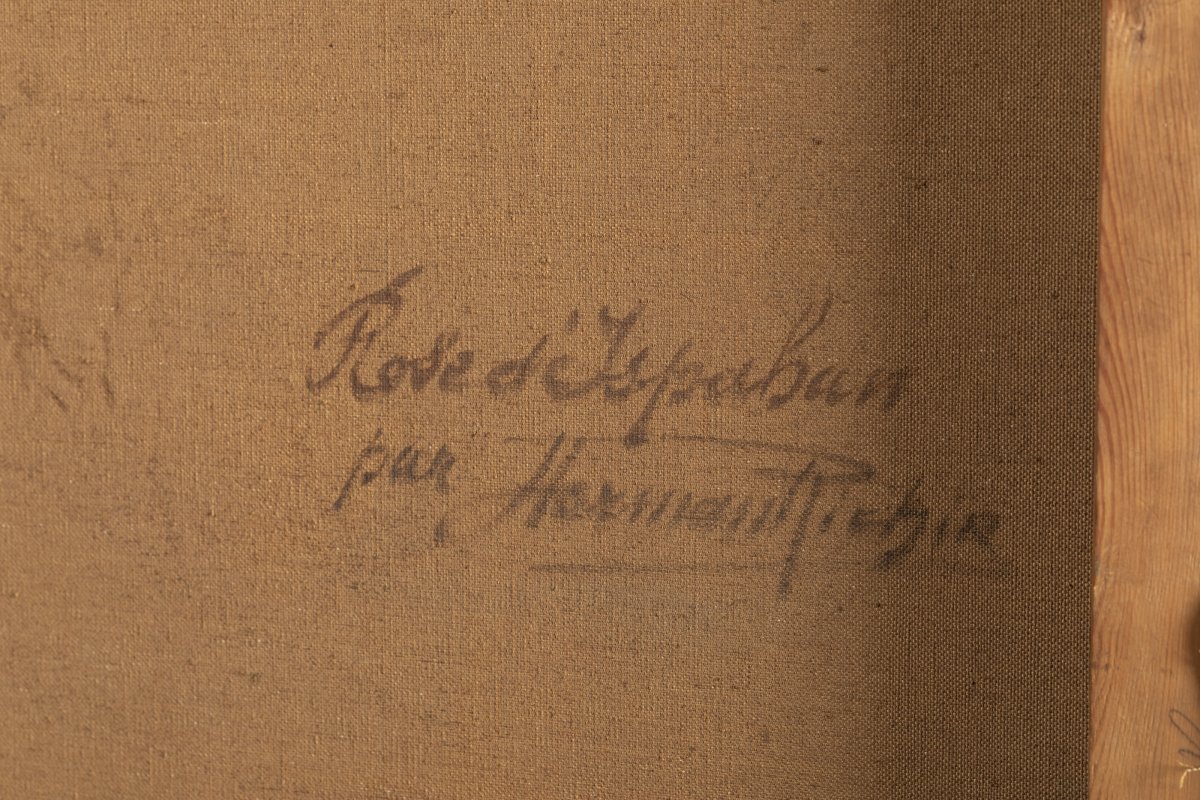 Rose d'Ispahan
par Herman Richir